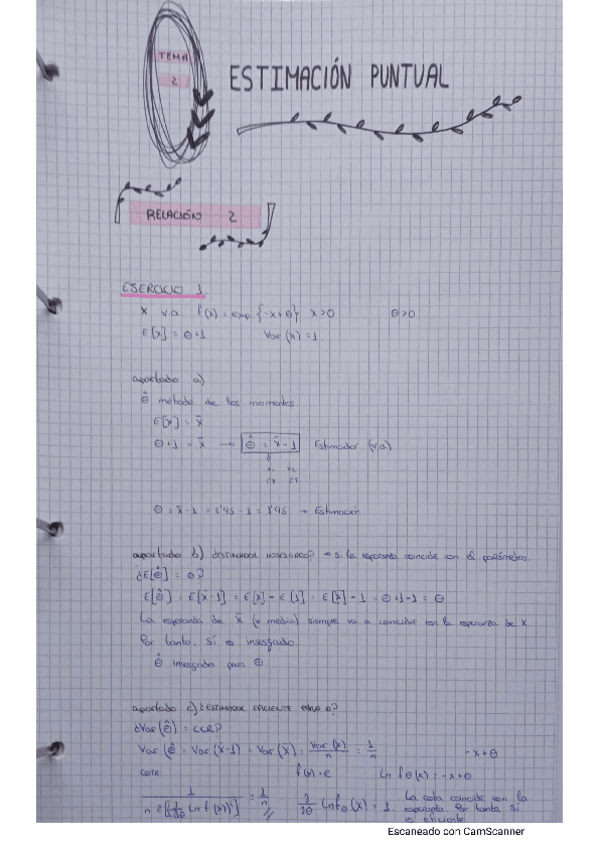 TEMA
2
ESTIMACIÓN PUNTUAL
RELACIÓN 2
EJERCICIO 1.
X v.a. f(x) = exp {-x+θ} x>0 θ>0
E[x] = θ+1 Var(x) = 1.
apartado a)
θ̂ método de los momentos.
E[x] = x̄
θ+1 = x̄ → θ̂ = x̄-1 Estimador (v.a)
x₁ x₂
θ = x̄-1 = 2'95 - 1 = 1'95 → Estimación
apartado b) ¿ESTIMADOR INSESGADO? → si la esperanza coincide con el parámetro.
¿E[θ̂] = θ?
E[θ̂] = E[x̄-1] = E[x̄] - E[1] = E[x̄] - 1 = θ+1-1 = θ
La esperanza de x̄ (x media) siempre va a coincidir con la esperanza de x
Por tanto, sí es insesgado.
θ̂ insesgado para θ
apartado c) ¿ESTIMADOR EFICIENTE PARA θ?
¿Var(θ̂) = CCR?
Var(θ̂) = Var(x̄-1) = Var(x̄) = Var(x)/n = 1/n
f(x) = e^(-x+θ) Ln fθ(x) = -x+θ
1/n E[(∂/∂θ Ln f(x))²] = 1/n ∂/∂θ Ln fθ(x) = 1. La cota coincide con la
esperanza. Por tanto, sí
es eficiente
Escaneado con CamScanner